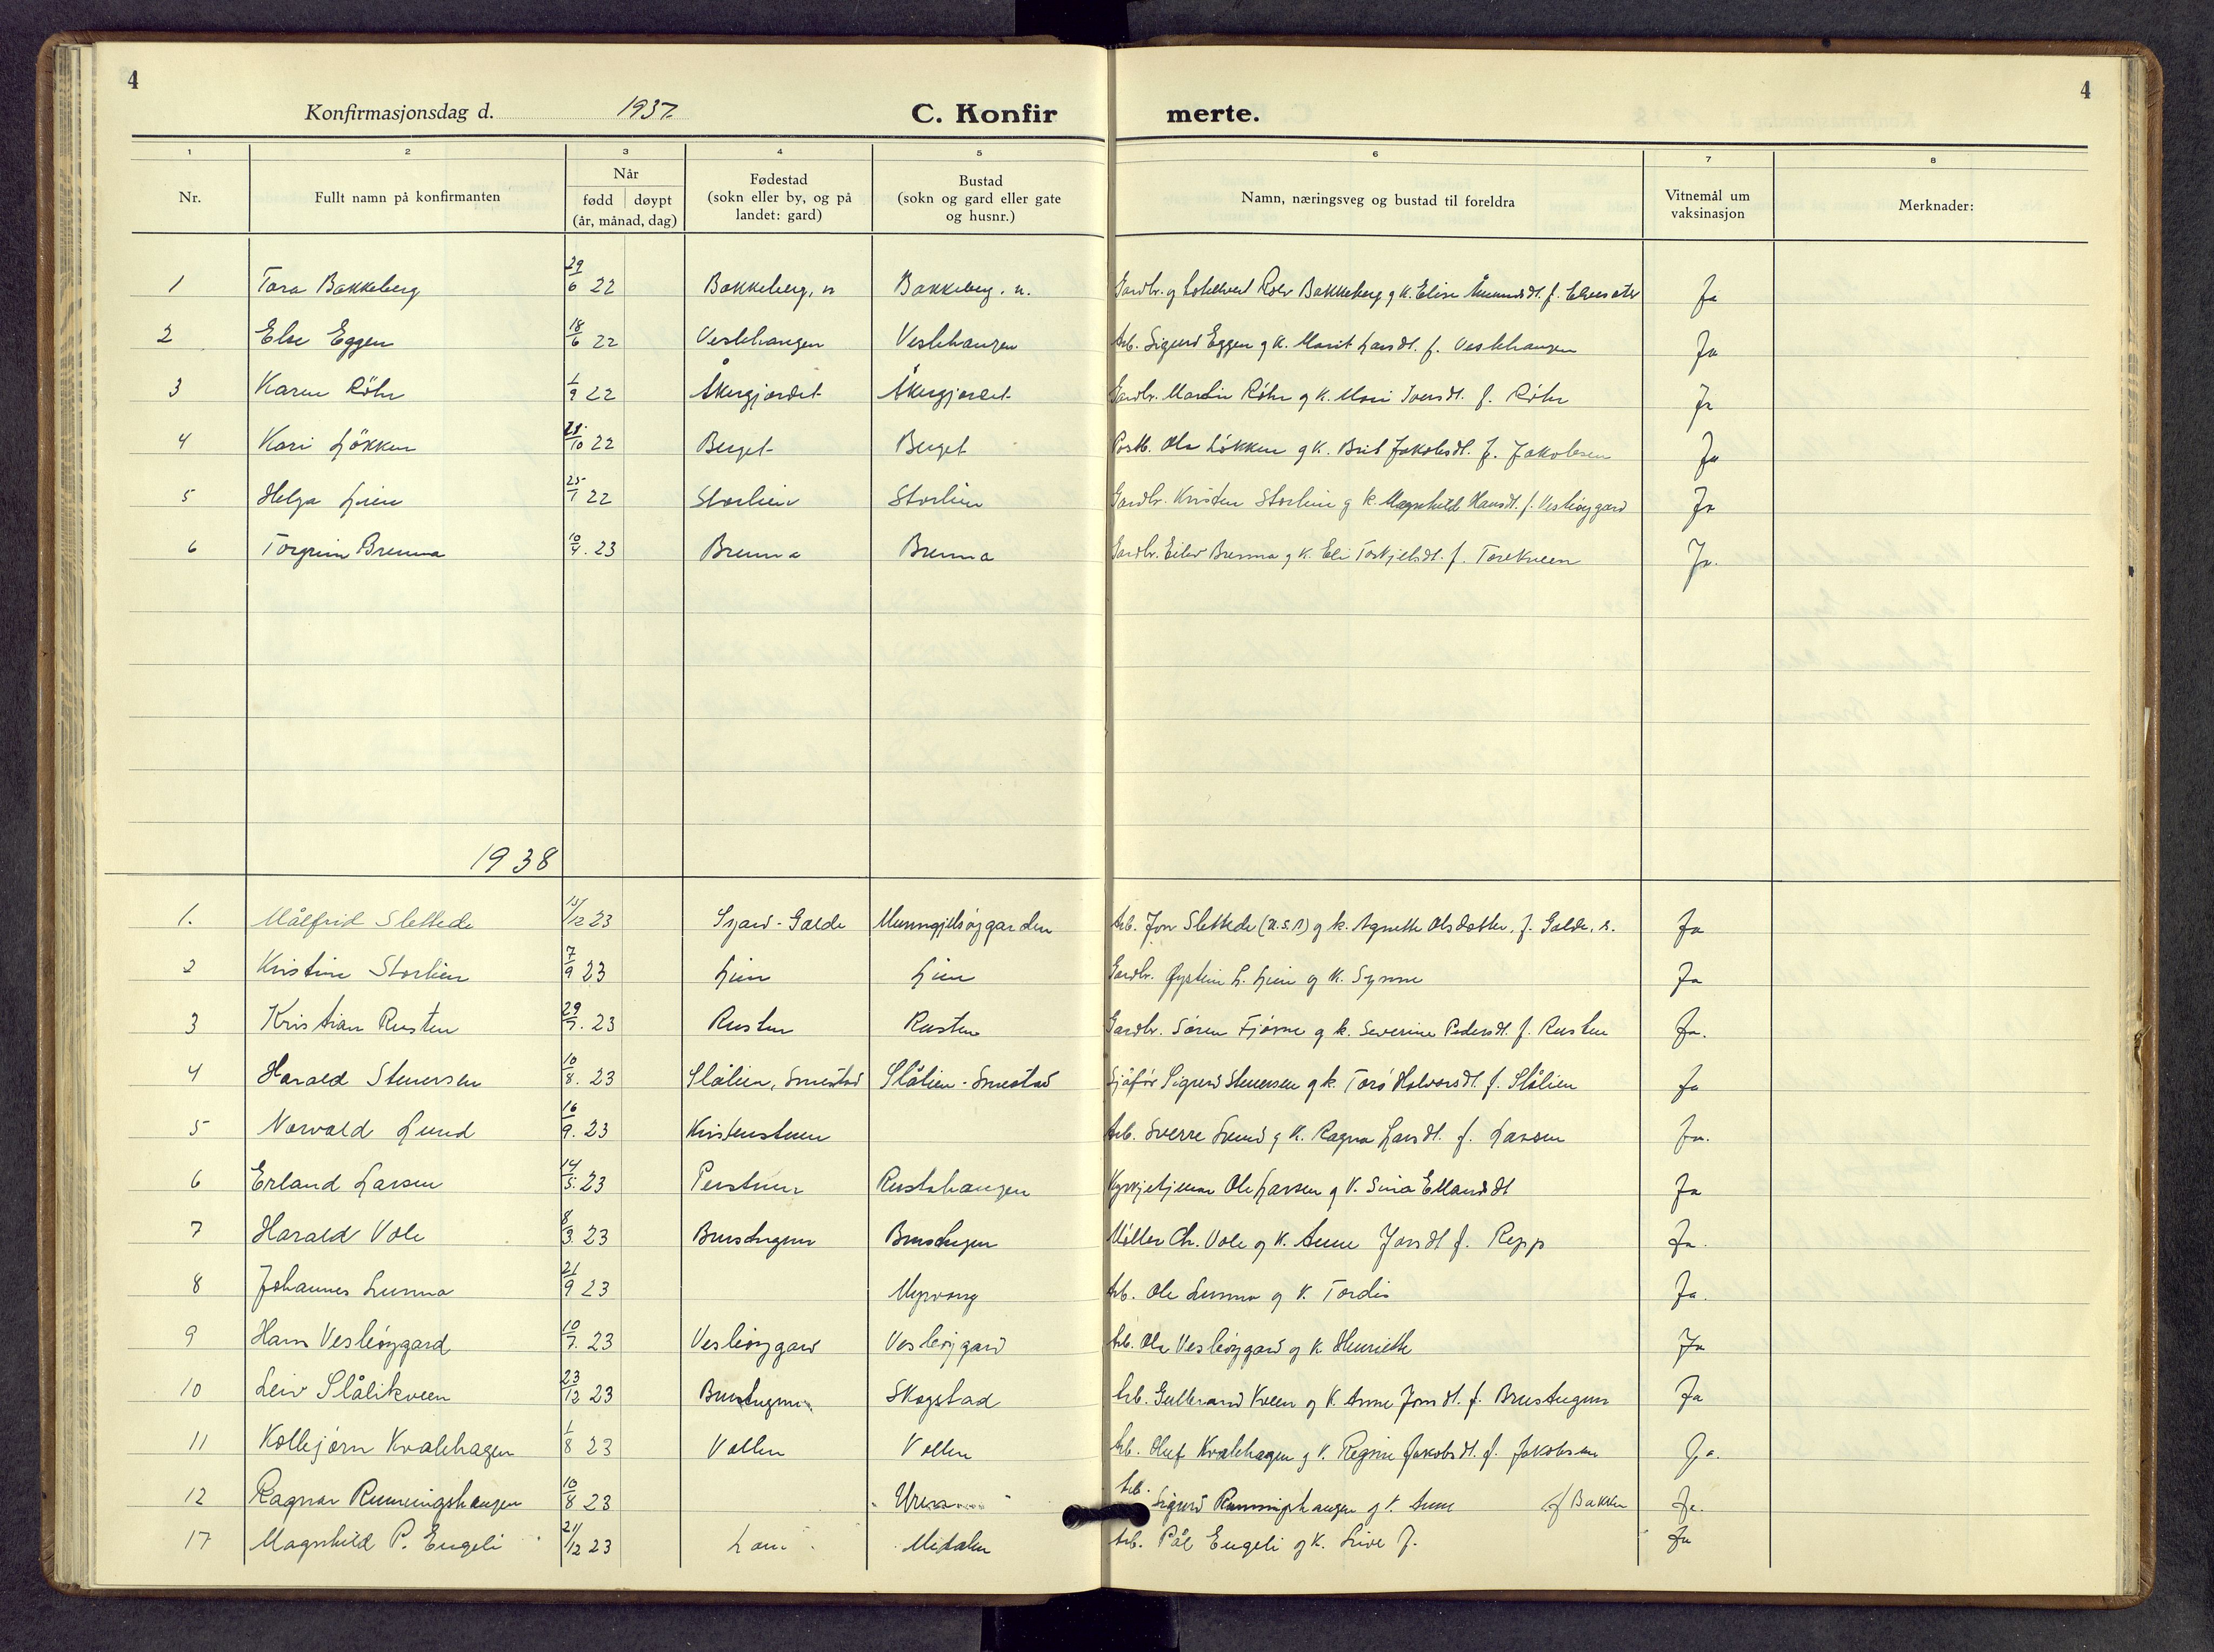 4
4
Konfirmasjonsdag d. 1937.
C. Konfir merte.
1 2 3 4 5 6 7 8
Nr. Fullt namn på konfirmanten Når født døypt (år, månad, dag) Fødestad (sokn eller by, og på landet: gard) Bustad (sokn og gard eller gate og husnr.) Namn, næringsveg og bustad til foreldra Vitnemål um vaksinasjon Merknader:
1 Tora Bakkeberg 29/6 22 Bakkeberg, n Bakkeberg. n. Gardbr. og Rolv Bakkeberg g k. Elise Åmundsdt. f. Elvesæter Ja
2 Else Eggen 18/6 22 Veslehaugen Veslehaugen Arb. Sigurd Eggen g k. Marit Larsdt. f. Veslehaugen Ja
3 Karen Röhr 1/9 22 Åkergjordet Åkergjordet Gardbr. Martin Röhr g k. Mari Iversdt. f. Röhr Ja
4 Kari Lökken 28/10 22 Berget Berget Postb. Ola Lökken g k. Brit Jakobsdt. f. Jakobsen Ja
5 Helga Lien 25/1 22 Storlien Storlien Gardbr. Kristen Storlien g k. Magnhild Hansdt. f. Vesleöygard Ja
6 Torgrim Brenna 10/4. 23 Brenna Brenna Gardbr. Eilev Brenna g k. Eli Torkjelsdt. f. Torekveen Ja.
1938
1. Målfrid Slettede 15/12 23 Sygard-Galde Munngjelsöygarden Arb. Jon Slettede (U.S.A) g k. Agnethe Olsdotter, f. Galde, s. Ja
2 Kristine Storlien 7/9 23 Lien Lien Gardbr. Øystein L. Lien og k. Synne Ja
3 Kristian Rusten 29/7. 23 Rusten Rusten Gardbr. Sören Fjörne g k. Severine Pedersdt. f. Rusten Ja.
4 Harald Stenersen 10/8. 23 Slålien, Smestad Slålien-Smestad Sjåför Sigurd Stenersen g k. Toro Halvorsdt. f. Slålien Ja
5 Norvald Lund 16/9. 23 Kristenstuen Arb. Sverre Lund g k. Ragna Larsdt. f. Larsen Ja.
6 Erland Larsen 14/5. 23 Perstuen Rustehaugen Kyrkjetjenar Ole Larsen g k. Sina Erlandsdt Ja
7 Harald Vole 8/3. 23 Brustugun Brustugun Möller Chr. Vole og k. Anne Jonsdt f. Repp Ja.
8 Johannes Lunna 21/9 23 Myrvang Arb. Ole Lunna og k. Tordis Ja.
9 Hans Vesleöygard 10/7. 23 Vesleöygard Vesleöygard Arb. Ola Vesleöygard og k. Henriette Ja
10 Leiv Slålikveen 23/12 23 Brustugun Skogstad Arb. Gulbrand Kveen og k. Anne Jonsdt. f. Brustugun Ja
11 Kolbjörn Kvalehagen 1/8 23 Vollen Vollen Arb. Oluf Kvalehagen g k. Regine Jakobsdt. f. Jakobsen Ja.
12 Ragnar Runningshaugen 10/8 23 Arb. Sigurd Runningshaugen og k. Anne f Bakken Ja.
17 Magnhild P. Engeli 21/12 23 Lom Midalen Arb. Pål Engeli og k. Live J. Ja